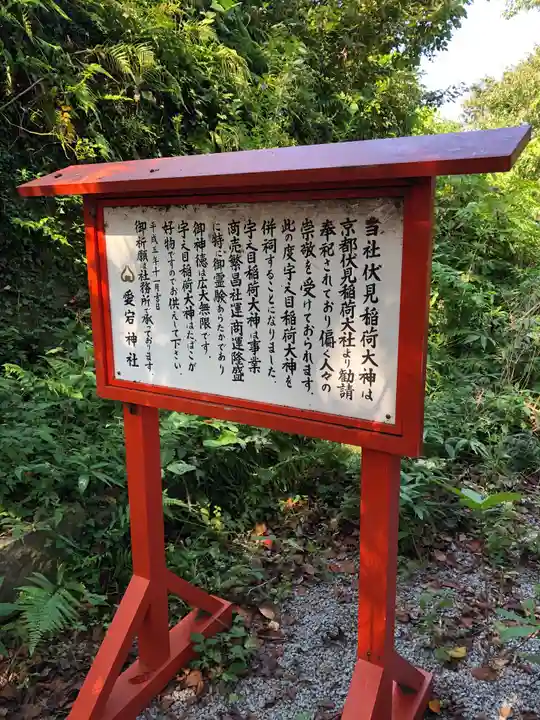 当社伏見稲荷大神は
京都伏見稲荷大社より勧請
奉祀されており偏く人々の
崇敬を受けておられます。
此の度宇之目稲荷大神を
併祠することになりました。
宇之目稲荷大神は事業
商売繁昌社運商運隆盛
に特に御霊験あらたかであり
御神徳は広大無限です。
宇之目稲荷大神はたばこが
好物ですのでお供えして下さい。
御祈願は社務所で承っております。
平成三年十一月吉日
愛宕神社